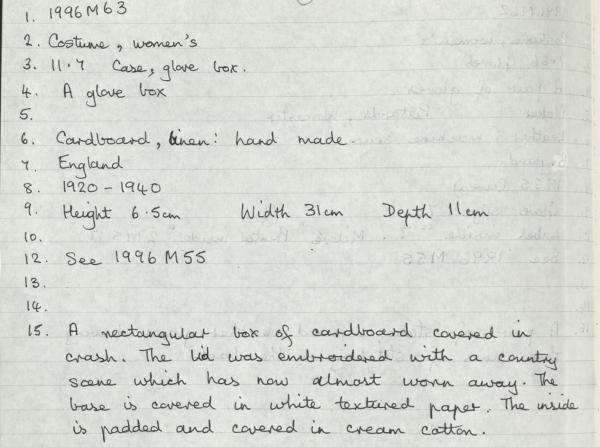 1. 1996M63
2. Costume, women's
3. 11.7 Case, glove box.
4. A glove box
5.
6. Cardboard, linen: hand made.
7. England
8. 1920-1940
9. Height 6.5cm Width 31cm Depth 11cm
10.
12. See 1996M55
13.
14.
15. A rectangular box of cardboard covered in
crash. The lid was embroidered with a country
scene which has now almost worn away. The
base is covered in white textured paper. The inside
is padded and covered in cream cotton.